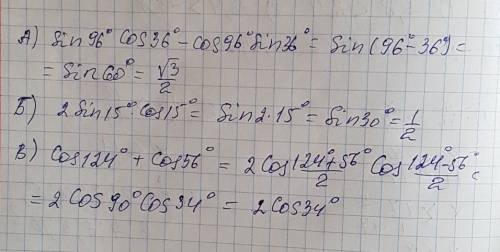 А) Sin 96° Cos 36° - Cos 96° Sin 36° = Sin (96° - 36°) =
= Sin 60° = √3/2
Б) 2 Sin 15° Cos 15° = Sin 2·15° = Sin 30° = 1/2
В) Cos 124° + Cos 56° = 2 Cos (124° + 56°)/2 Cos (124° - 56°)/2 =
= 2 Cos 90° Cos 34° = 2 Cos 34°